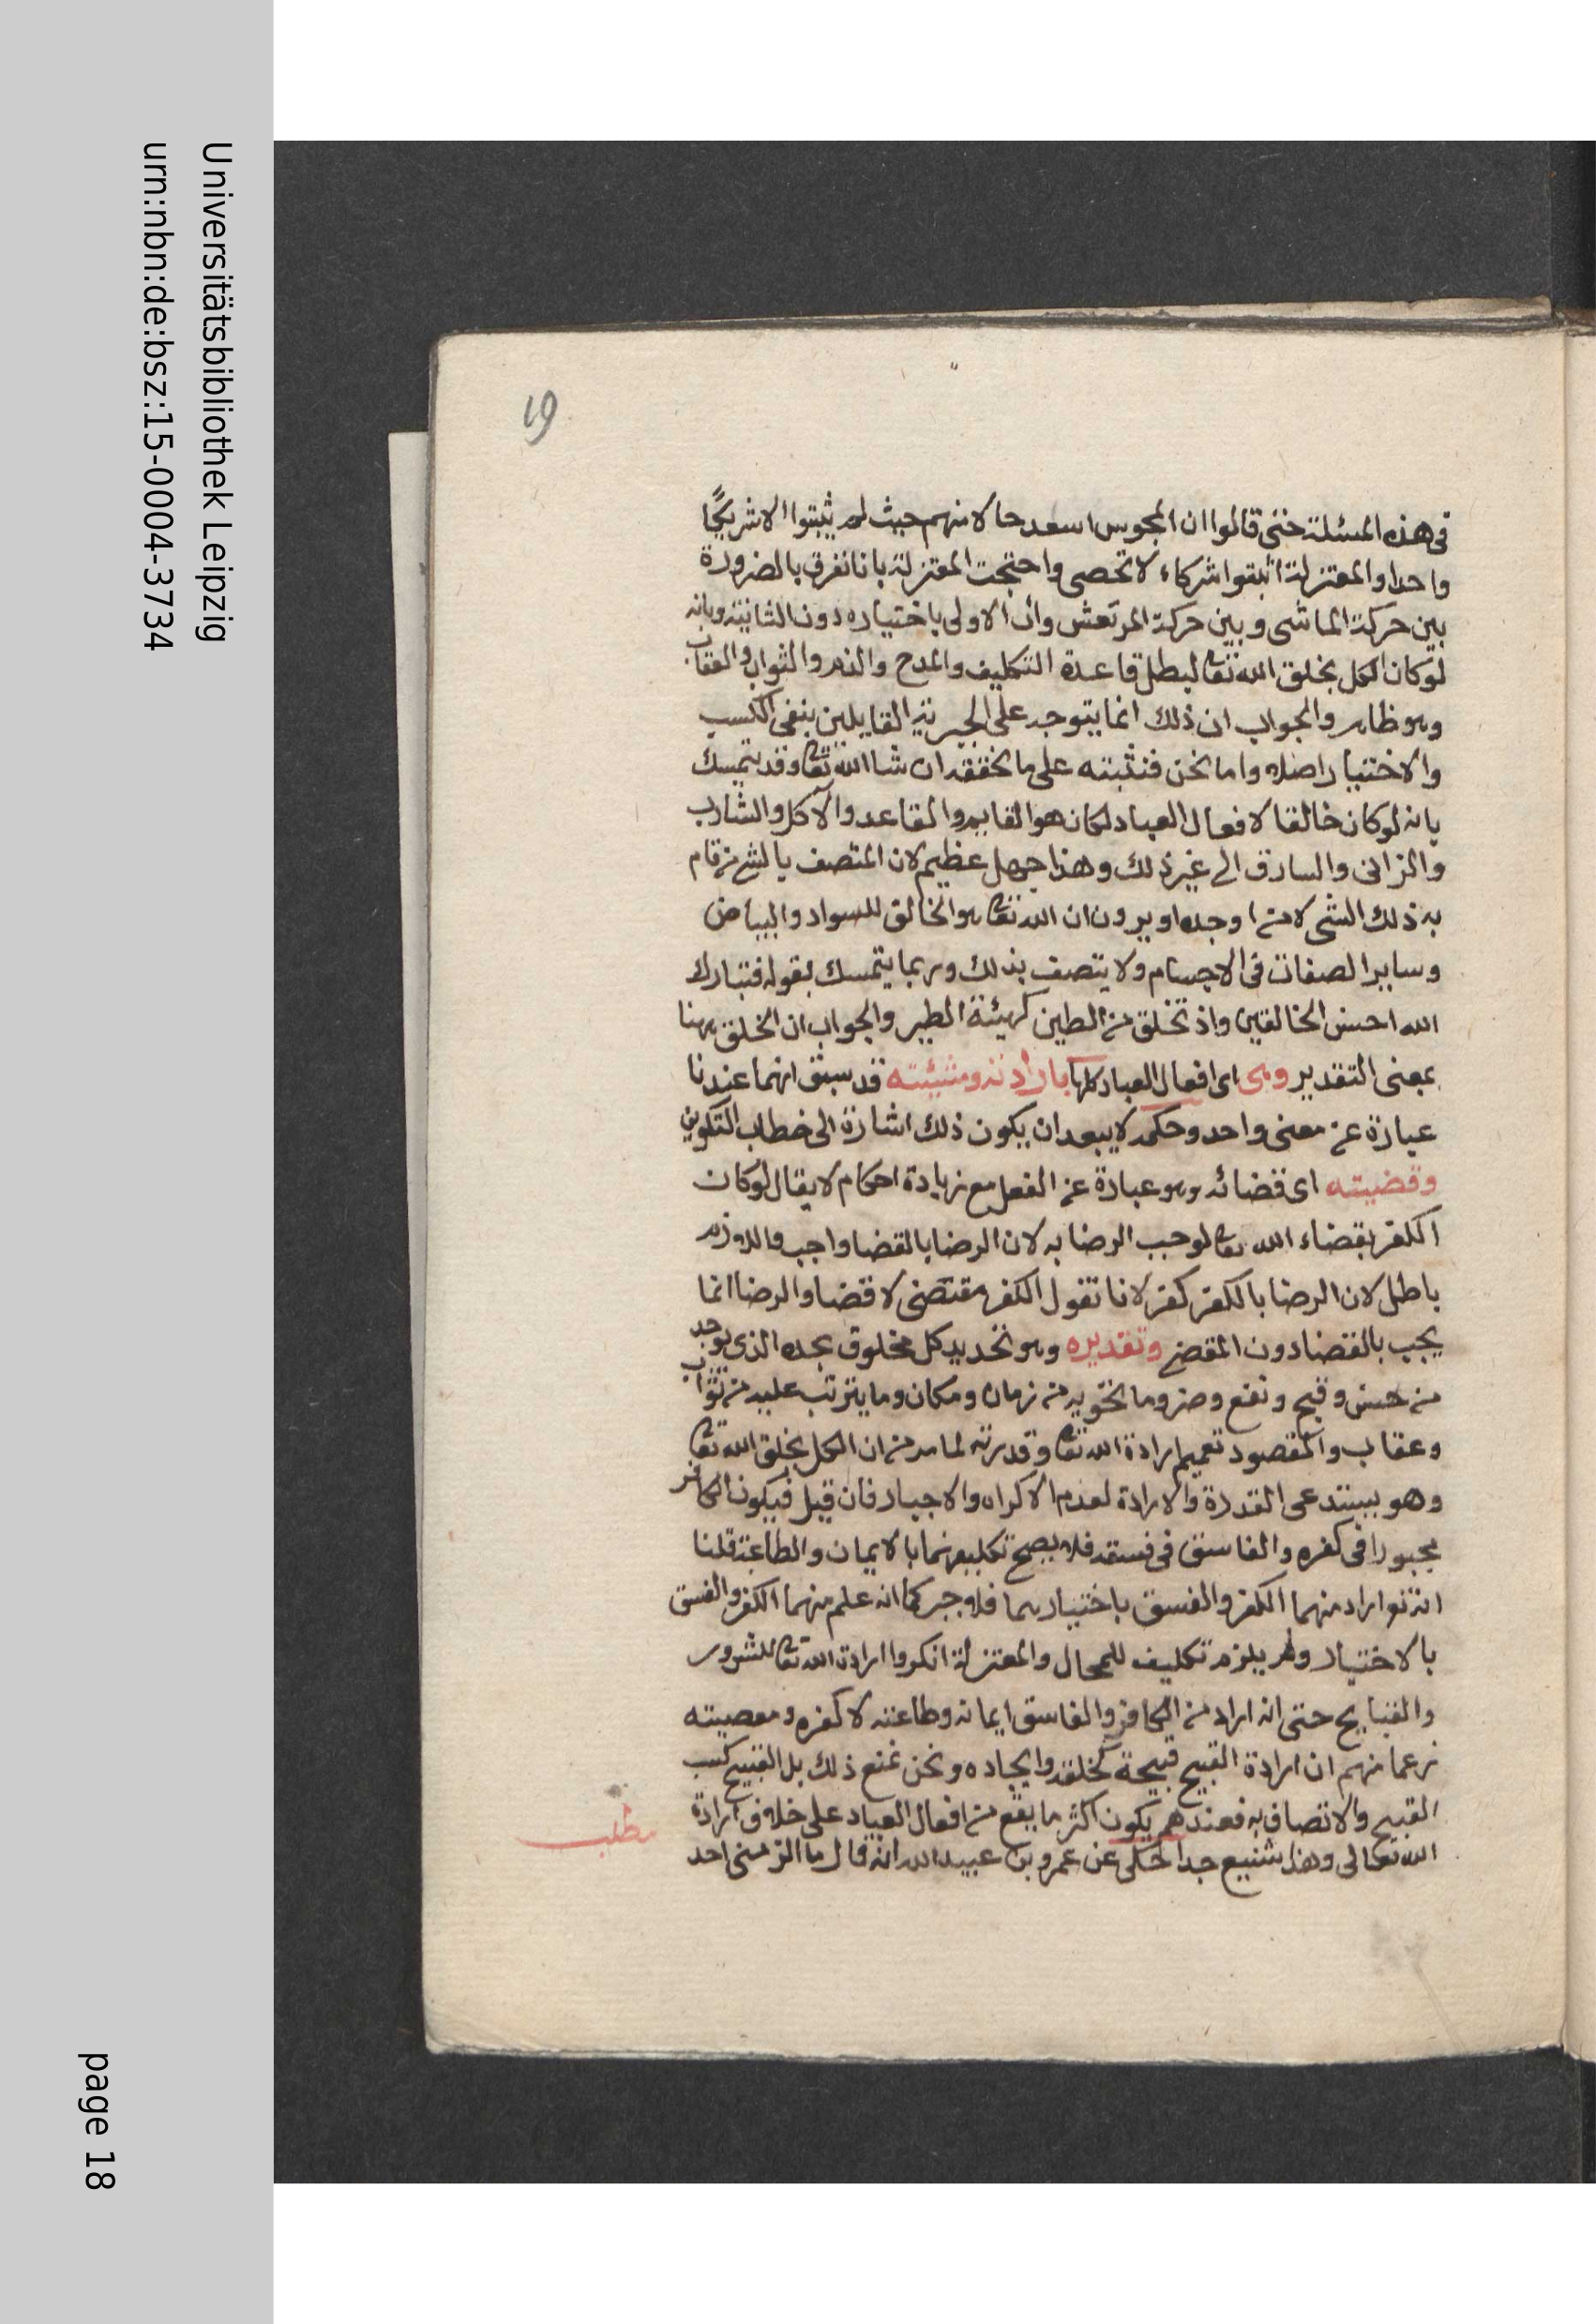 Universitätsbibliothek Leipzig
urn:nbn:de:bsz:15-0004-3734
page 18
19
فى هذه المسئلة حتى قالوا ان المجوس اسعد حالا منهم حيث لم يثبتوا الا شريكًا
واحدا والمعتزلة اثبتوا شركاء لا تحصى واحتجت المعتزلة بانا نفرق بالضرورة
بين حركة الماشى وبين حركة المرتعش وان الاولى باختياره دون الثانية وبانه
لوكان الكل بخلق الله تعا لبطل قاعدة التكليف والمدح والذم والثواب والعقاب
وهو ظاهر والجواب ان ذلك انما يتوجه على الجبرية القايلين بنفى الكسب
والاختيار اصلا واما نحن فنثبته على ما نحققه ان شا الله تعا وقد يتمسك
بانه لوكان خالقا لافعال العباد لكان هو القايم والقاعد والآكل والشارب
والزانى والسارق الى غير ذلك وهذا جهل عظيم لان المتصف بالشئ من قام
به ذلك الشى لا من اوجده او يرون ان الله تعا هو الخالق للسواد والبياض
وساير الصفات فى الاجسام ولا يتصف بذلك وربما يتمسك بقوله فتبارك
الله احسن الخالقين واذ تخلق من الطين كهيئة الطير والجواب ان الخلق ههنا
بمعنى التقدير وهى اى افعال العباد كلها بارادته ومشيئته قد سبق انهما عندنا
عبارة عن معنى واحد وحكمه لا يبعد ان يكون ذلك اشارة الى خطاب التكوين
وقضيته اى قضائه وهو عبارة عن الفعل مع زيادة احكام لا يقال لوكان
الكفر بقضاء الله تعا لوجب الرضا به لان الرضا بالقضا واجب واللازم
باطل لان الرضا بالكفر كفر لانا نقول الكفر مقتضى لا قضا والرضا انما
يجب بالقضا دون المقضى وتقديره وهو تحديد كل مخلوق بحده الذى يوجد
من حسن وقبح ونفع وضر وما يحويه من زمان ومكان وما يترتب عليه من ثواب
وعقاب والمقصود تعميم ارادة الله تعا وقدرته لما مر من ان الكل بخلق الله تعا
وهو يستدعى القدرة والارادة لعدم الاكراه والاجبار فان قيل فيكون الكافر
مجبورا فى كفره والفاسق فى فسقه فلا يصح تكليفهما بالايمان والطاعة قلنا
انه تعا اراد منهما الكفر والفسق باختيارهما فلا جبر كما انه علم منهما الكفر والفسق
بالاختيار ولم يلزم تكليف المحال والمعتزلة انكروا ارادة الله تعا للشرور
والقبايح حتى انه اراد من الكافر والفاسق ايمانه وطاعته لا كفره ومعصيته
زعما منهم ان ارادة القبيح قبيحة كخلقه وايجاده ونحن نمنع ذلك بل القبيح كسب
القبيح والاتصاف به فعندهم يكون اكثر ما يقع من افعال العباد على خلاف ارادة
الله تعالى وهذا شنيع جدا حكى عن عمرو بن عبيد الله انه قال ما الزمنى احد
مطلب